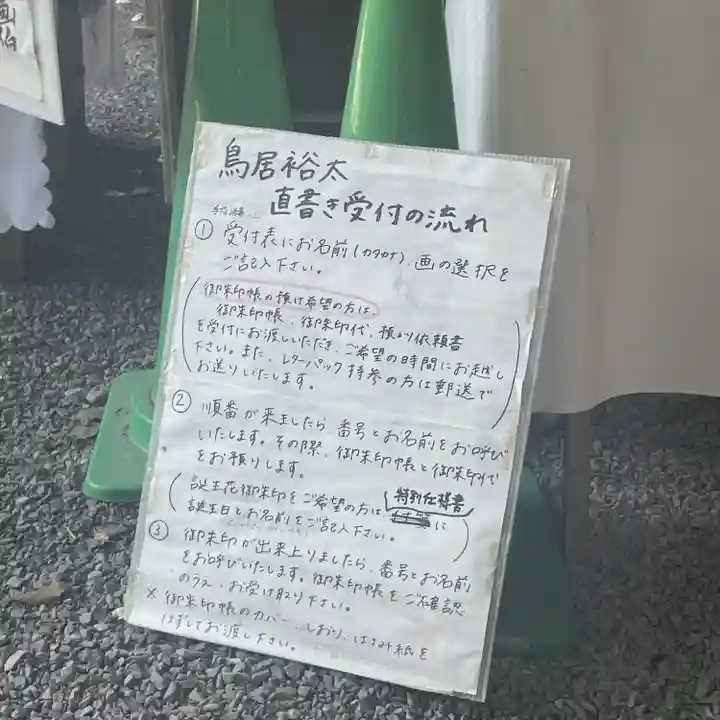 鳥居裕太
直書き受付の流れ
① 受付表にお名前(カタカナ)、画の選択を
ご記入下さい。
(御朱印帳の預け希望の方は、
御朱印帳、御朱印代、預かり依頼書
を受付にお渡しいただき、ご希望の時間にお越し
下さい。また、レターパック持参の方は郵送で
お送りいたします。)
② 順番が来ましたら 番号とお名前をお呼び
いたします。その際、御朱印帳と御朱印代
をお預りします。
(誕生花御朱印をご希望の方は 特別仕様書に
誕生日とお名前をご記入下さい。)
③ 御朱印が出来上りましたら、番号とお名前
をお呼びいたします。御朱印帳をご確認
のうえ、お受け取り下さい。
※ 御朱印帳のカバー、しおり、はさみ紙を
はずしてお渡し下さい。